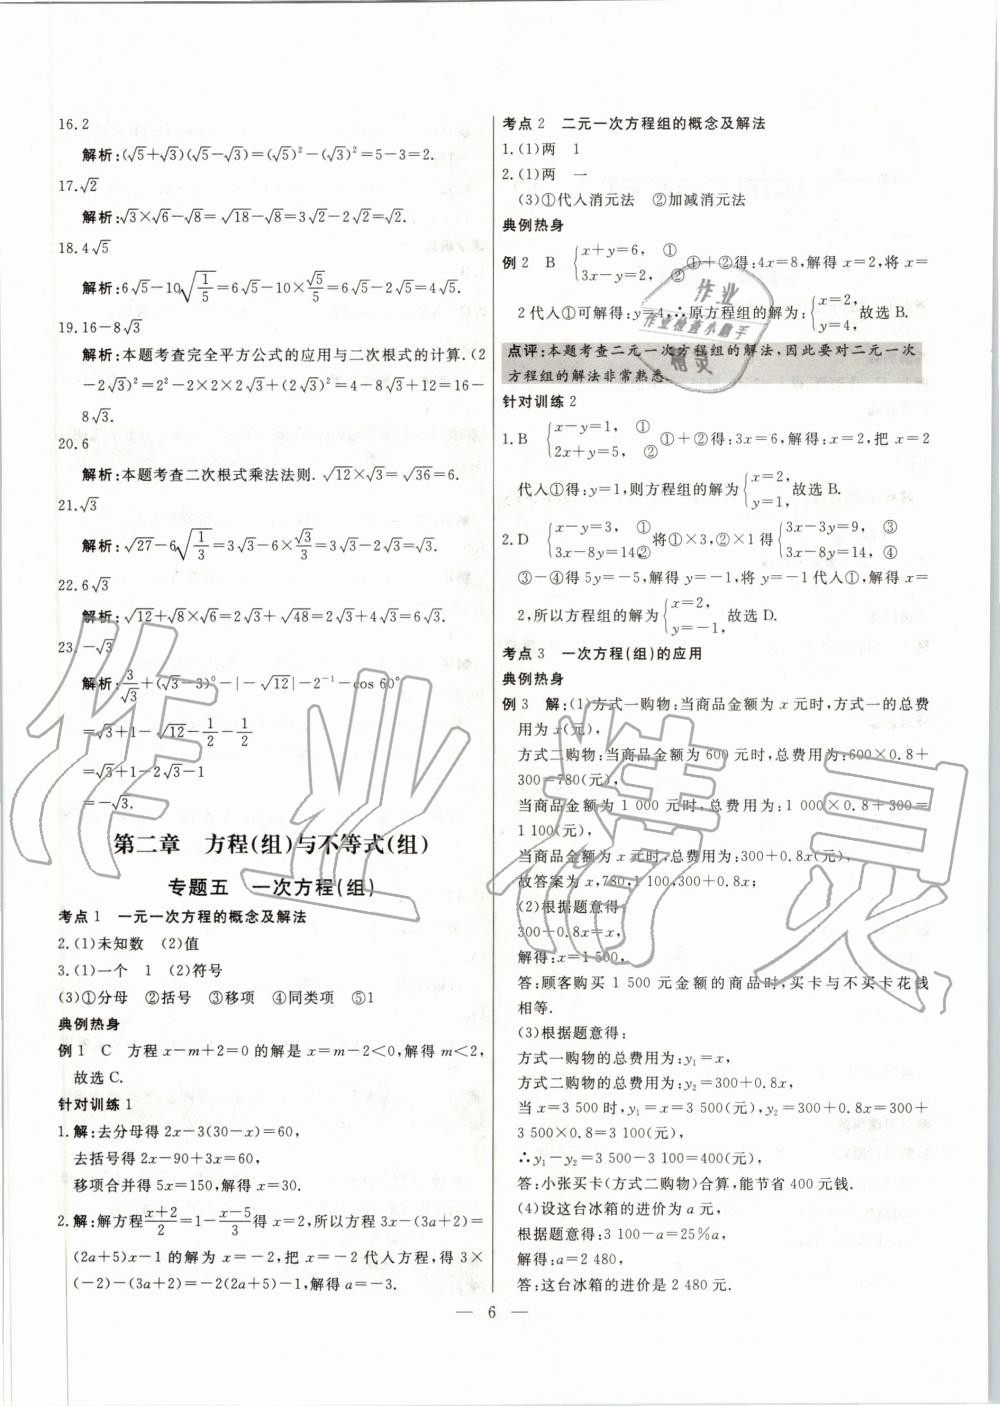 16.2
解析:(√5+√3)(√5-√3)=(√5)²-(√3)²=5-3=2.
17.√2
解析:√3×√6-√8=√18-√8=3√2-2√2=√2.
18.4√5
解析:6√5-10√(1/5)=6√5-10×√5/5=6√5-2√5=4√5.
19.16-8√3
解析:本题考查完全平方公式的应用与二次根式的计算.(2
-2√3)²=2²-2×2×2√3+(2√3)²=4-8√3+12=16-
8√3.
20.6
解析:本题考查二次根式乘法法则.√12×√3=√36=6.
21.√3
解析:√27-6√(1/3)=3√3-6×√3/3=3√3-2√3=√3.
22.6√3
解析:√12+√8×√6=2√3+√48=2√3+4√3=6√3.
23.-√3
解析:3/√3+(√3-3)⁰-|-√12|-2⁻¹-cos 60°
=√3+1-√12-1/2-1/2
=√3+1-2√3-1
=-√3.
第二章 方程(组)与不等式(组)
专题五 一次方程(组)
考点1 一元一次方程的概念及解法
2.(1)未知数 (2)值
3.(1)一个 1 (2)符号
(3)①分母 ②括号 ③移项 ④同类项 ⑤1
典例热身
例1 C 方程 x-m+2=0 的解是 x=m-2<0,解得 m<2,
故选C.
针对训练1
1.解:去分母得 2x-3(30-x)=60,
去括号得 2x-90+3x=60,
移项合并得 5x=150,解得 x=30.
2.解:解方程 (x+2)/2=1-(x-5)/3 得 x=2,所以方程 3x-(3a+2)=
(2a+5)x-1 的解为 x=-2,把 x=-2 代人方程,得 3×
(-2)-(3a+2)=-2(2a+5)-1,解得 a=-3.
考点2 二元一次方程组的概念及解法
1.(1)两 1
2.(1)两 一
(3)①代人消元法 ②加减消元法
典例热身
例2 B {x+y=6, ① 3x-y=2, ② ①+②得:4x=8,解得 x=2,将 x=
2代人①可解得:y=4,∴原方程组的解为:{x=2, y=4, 故选B.
点评:本题考查二元一次方程组的解法,因此要对二元一次
方程组的解法非常熟悉.
针对训练2
1.B {x-y=1, ① 2x+y=5, ② ①+②得:3x=6,解得:x=2,把 x=2
代人①得:y=1,则方程组的解为{x=2, y=1. 故选B.
2.D {x-y=3, ① 3x-8y=14② 将①×3,②×1得{3x-3y=9, ③ 3x-8y=14, ④
③-④得 5y=-5,解得 y=-1,将 y=-1代人①,解得 x=
2,所以方程组的解为{x=2, y=-1, 故选D.
考点3 一次方程(组)的应用
典例热身
例3 解:(1)方式一购物:当商品金额为 x 元时,方式一的总费
用为 x(元),
方式二购物:当商品金额为 600 元时,总费用为:600×0.8+
300=780(元),
当商品金额为 1 000 元时,总费用为:1 000×0.8+300=
1 100(元),
当商品金额为 x 元时,总费用为:300+0.8x(元),
故答案为 x,780,1 100,300+0.8x;
(2)根据题意得:
300+0.8x=x,
解得:x=1 500,
答:顾客购买 1 500 元金额的商品时,买卡与不买卡花钱
相等.
(3)根据题意得:
方式一购物的总费用为:y₁=x,
方式二购物的总费用为:y₂=300+0.8x,
当 x=3 500 时,y₁=x=3 500(元),y₂=300+0.8x=300+
3 500×0.8=3 100(元),
∴y₁-y₂=3 500-3 100=400(元),
答:小张买卡(方式二购物)合算,能节省 400 元钱.
(4)设这台冰箱的进价为 a 元,
根据题意得:3 100-a=25%a,
解得:a=2 480,
答:这台冰箱的进价是 2 480 元.
— 6 —
作业
作业检查小助手
精灵
作业精灵